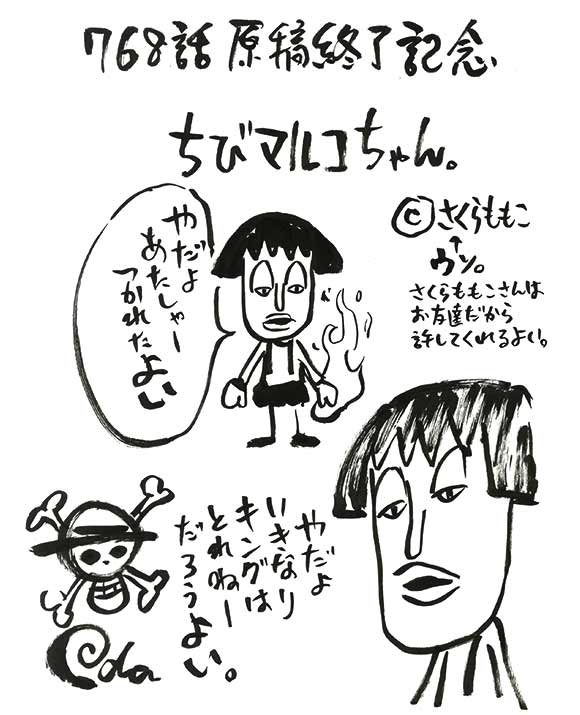 768話 原稿終了記念
ちびマルコちゃん。
やだよ
あたしゃー
つかれたよい
Ⓒさくらももこ
↑
ウソ。
さくらももこさんは
お友達だから
許してくれるよい。
やだよ
いきなり
キングは
とれねー
だろうよい。
Oda